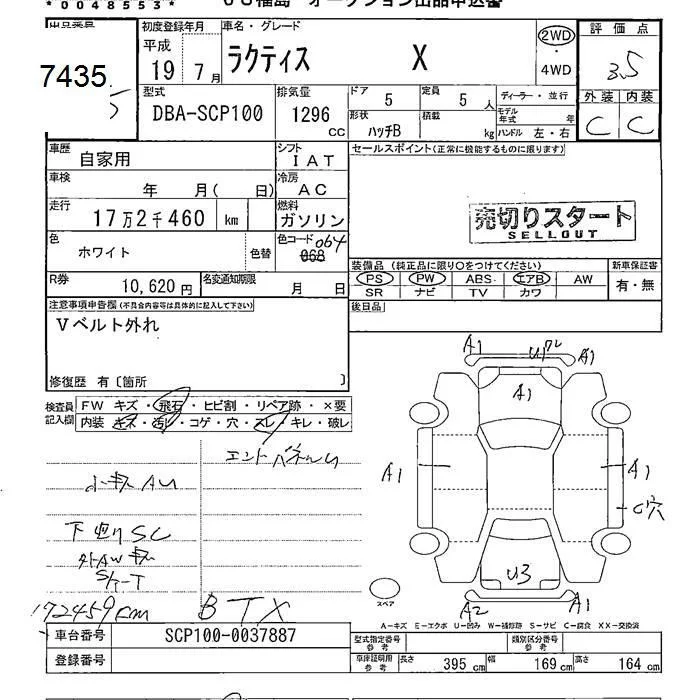 * 0048553 *
オークション出品申込書
出品番号
7435
初度登録年月
平成
19年 7月
車名・グレード
ラクティス X
2WD
・
4WD
評価点
3.5
外装 内装
C C
型式
DBA-SCP100
排気量
1296
CC
ドア 5
定員 5 人
形状
ハッチB
積載
kg
ディーラー・並行
モデル年式 年
ハンドル 左・右
車歴
自家用
シフト
IAT
車検
年 月( 日)
冷房
AC
走行
17万2千460 km
燃料
ガソリン
色
ホワイト
色替
色コード 064
068
R券
10,620円
名変通知期限
月 日
セールスポイント(正常に機能するものに限ります)
売切りスタート
SELLOUT
装備品 (純正品に限り○をつけてください)
PS PW ABS エアB AW
SR ナビ TV カワ
新車保証書
有・無
後日品
注意事項申告欄(不具合内容等は具体的に記入して下さい)
Vベルト外れ
修復歴 有〔箇所 〕
検査員記入欄
FW キズ・飛石・ヒビ割・リペア跡・×要
内装 キズ・汚レ・コゲ・穴・スレ・キレ・破レ
エンドパネルU
小キズAU
下廻りSC
172459km
BTX
A1
A1
A1
A1
A1
C穴
U3
A2
A1
スペア
A-キズ E-エクボ U-凹み W-補修跡 S-サビ C-腐食 XX-交換済
車台番号
SCP100-0037887
登録番号
型式指定番号
参考
類別区分番号
参考
車庫証明用
参考
長さ 395 cm
幅 169 cm
高さ 164 cm